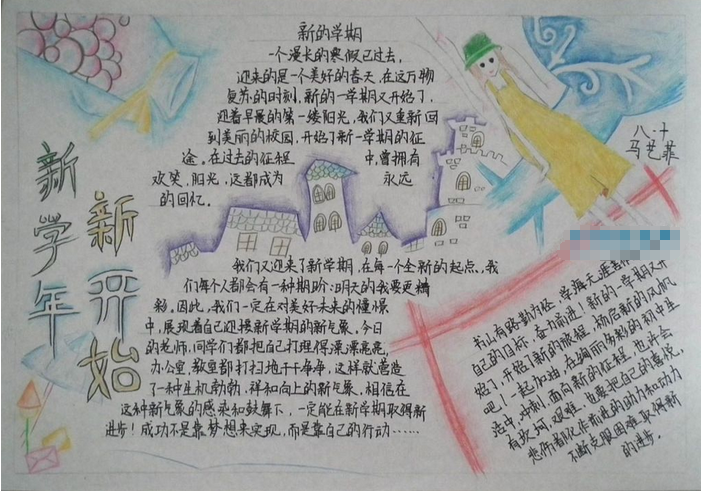 新学年
新开始
新的学期
一个漫长的寒假已过去,
迎来的是一个美好的春天,在这万物
复苏的时刻,新的一学期又开始了,
迎着早晨的第一缕阳光,我们又重新回
到美丽的校园,开始了新一学期的征
途。在过去的征程中,曾拥有
欢笑、阳光,这都成为永远
的回忆。
八·十
马艺菲
我们又迎来了新学期,在每一个全新的起点、我
们每个人都会有一种期盼:明天的我要更精
彩,因此,我们一定在对美好未来的憧憬
中,展现着自己迎接新学期的新气象,今日
的老师,同学们都把自己打理得漂漂亮亮,
办公室,教室都打扫地干干净净,这样就营造
了一种生机勃勃,祥和向上的新气象,相信在
这种新气象的感染和鼓舞下,一定能在新学期取得新
进步!成功不是靠梦想来实现,而是靠自己的行动……
书山有路勤为径,学海无涯苦作
自己的目标,奋力前进!新的一学期又开
始了,开始了新的旅程,扬启新的风帆
吧!一起加油,在绚丽多彩的初中生
活中,冲刺!面向新的征程,也许会
有坎坷、艰难,也要把自己的喜悦,
悲伤都化作前进的动力和动力
不断克服困难取得新
的进步。